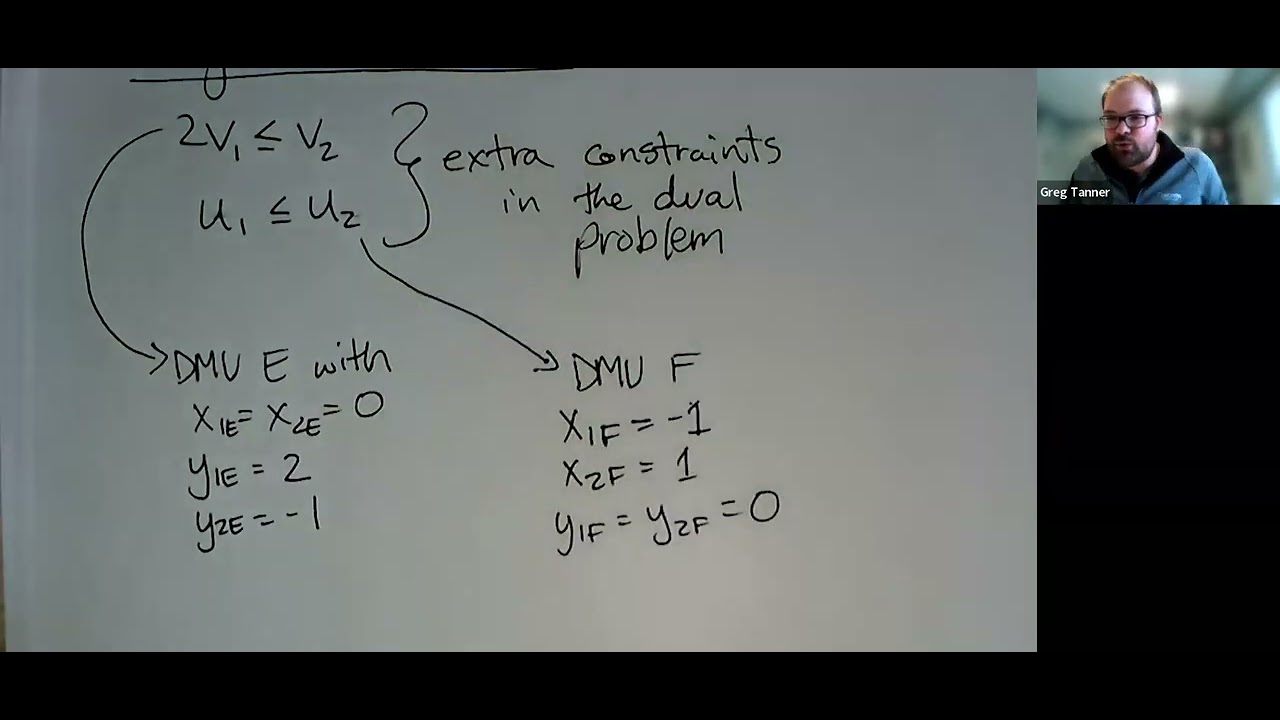 2V₁ ≤ V₂
u₁ ≤ u₂
extra constraints
in the dual
problem
DMU E with
x₁E = x₂E = 0
y₁E = 2
y₂E = -1
DMU F
x₁F = -1
x₂F = 1
y₁F = y₂F = 0
Greg Tanner